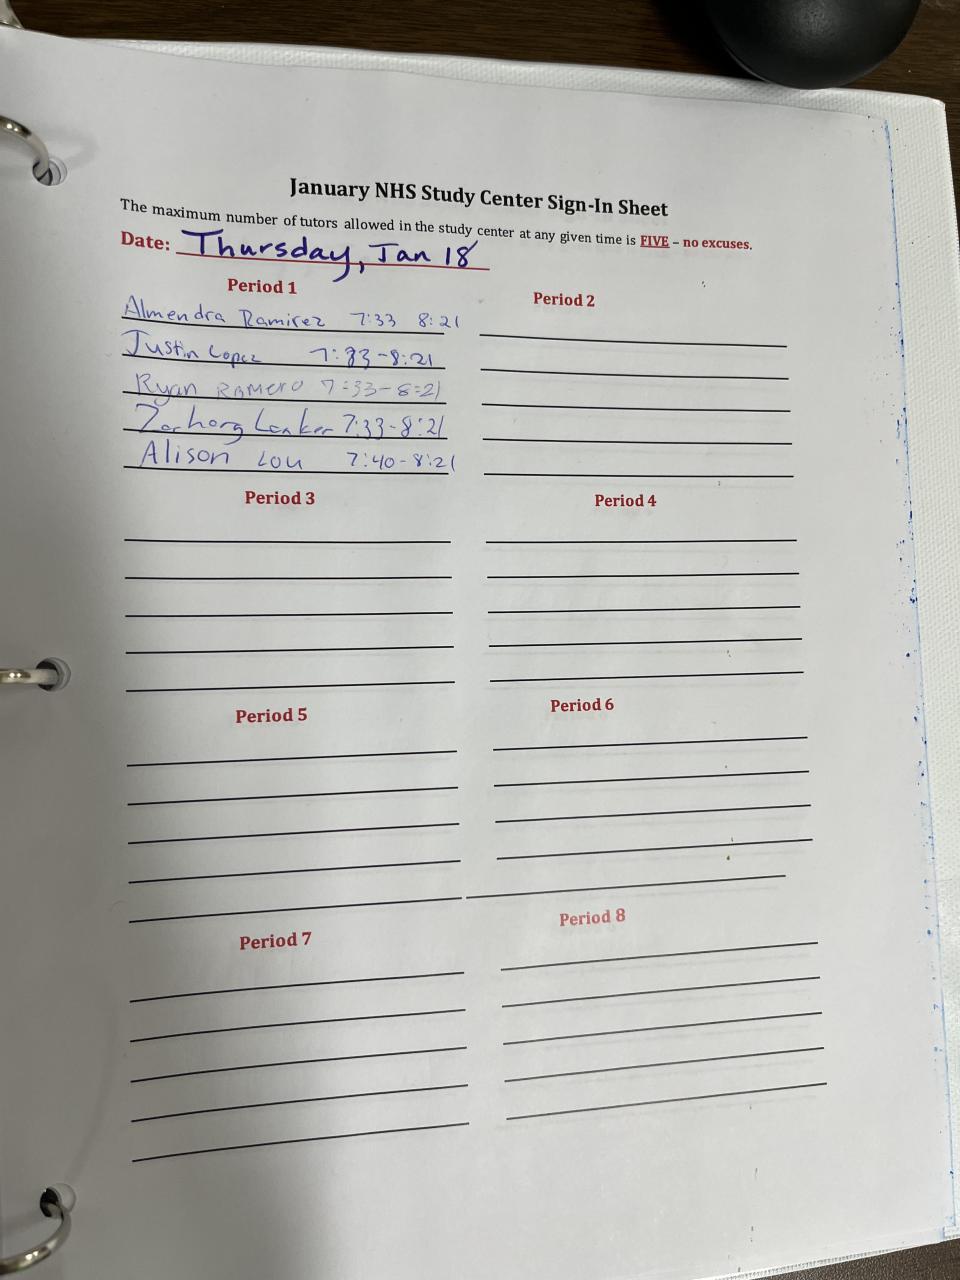 January NHS Study Center Sign-In Sheet
The maximum number of tutors allowed in the study center at any given time is FIVE – no excuses.
Date: Thursday, Jan 18
Period 1
Almendra Ramirez 7:33 8:21
Justin Lopez 7:33-8:21
Ryan Romero 7:33-8:21
Zachary 7:33-8:21
Alison Lou 7:40-8:21
Period 2
Period 3
Period 4
Period 5
Period 6
Period 7
Period 8